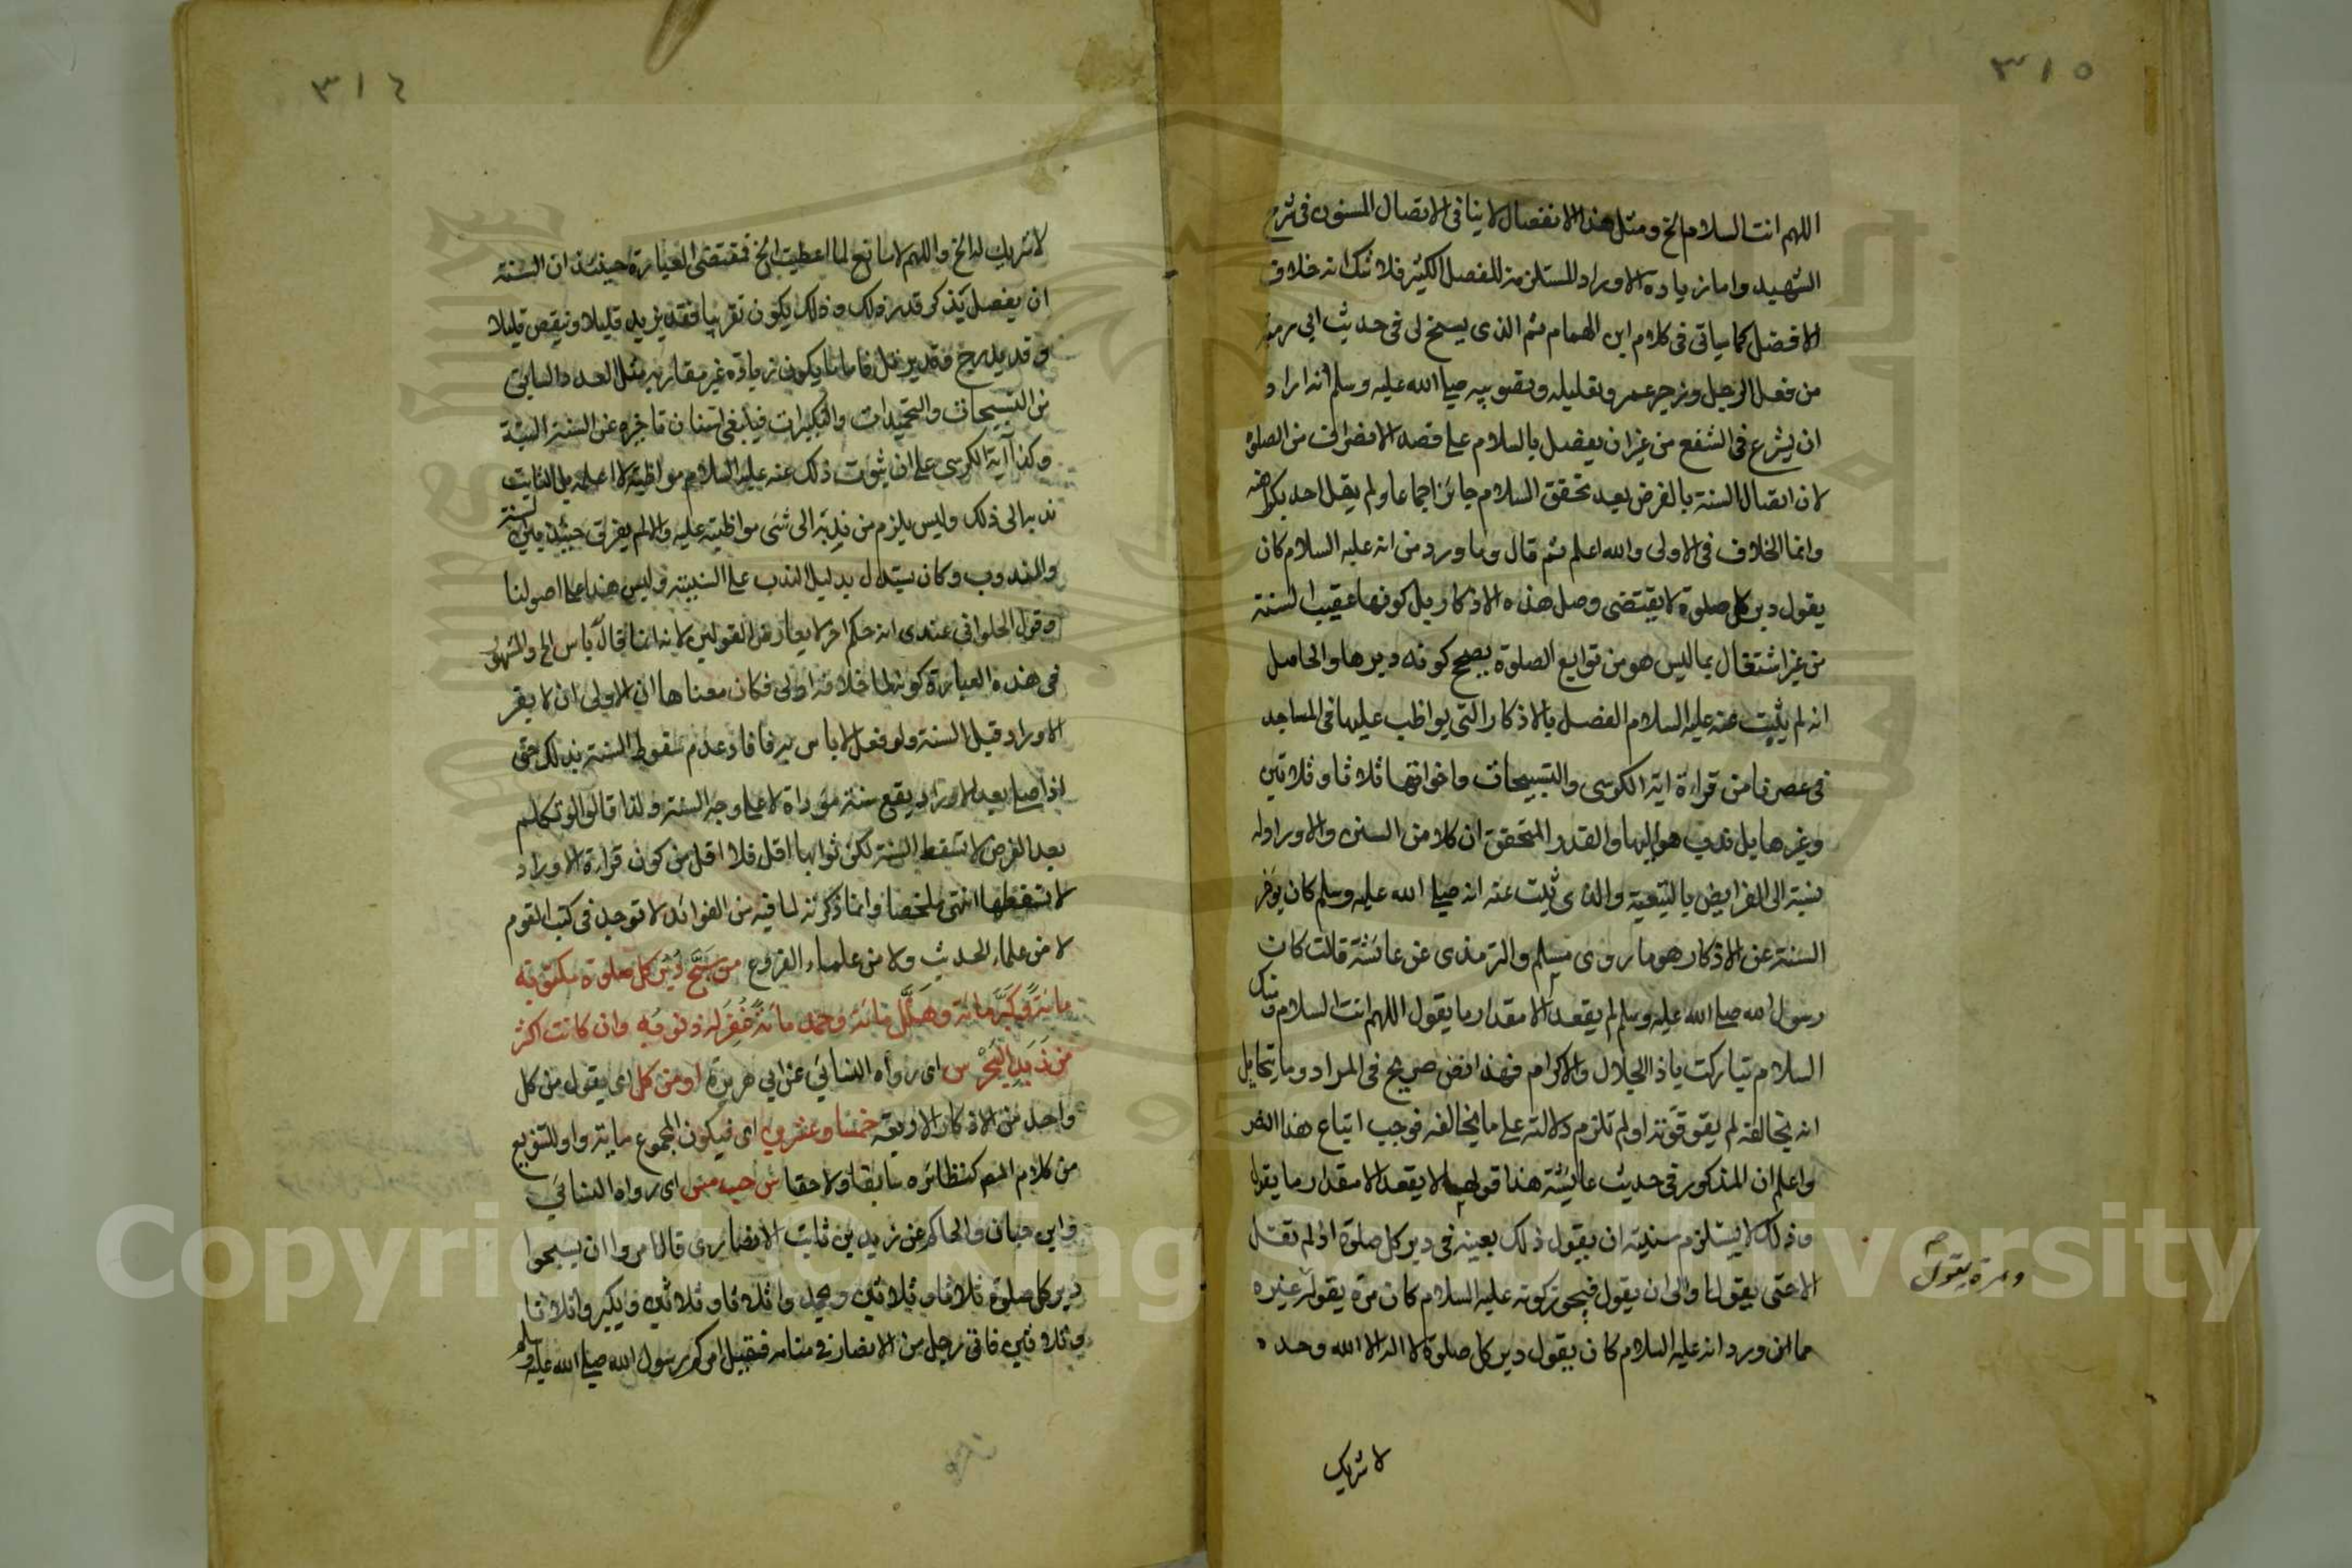 ٣١٥
اللهم انت السلام الخ ومثل هذا الانفصال لا ينافى الاتصال المسنون فى شرح
الشهيد واما زيادة الاوراد المستلزمة للفصل الكثير فلا شك انه خلاف
الافضل كما سياتى فى كلام ابن الهمام ثم الذى يسنح لى فى حديث ابى رمثة
من فعل الرجل وزجر عمر وتعليله وتصويبه صلى الله عليه وسلم انه اراد
ان يشرع فى الشفع من غير ان يفصل بالسلام على قصد الانصراف من الصلوة
لان اتصال السنة بالفرض بعد تحقق السلام جائز اجماعا ولم يقل احد بكراهته
وانما الخلاف فى الاولى والله اعلم ثم قال وما ورد من انه عليه السلام كان
يقول دبر كل صلوة لا يقتضى وصل هذه الاذكار بل كونها عقيب السنة
من غير اشتغال بما ليس هو من توابع الصلوة يصح كونه دبرها والحاصل
انه لم يثبت عنه عليه السلام الفصل بالاذكار التى يواظب عليها فى المساجد
فى عصرنا من قراءة اية الكرسى والتسبيحات واخواتها ثلاثا وثلاثين
وغيرها بل ندب هو اليها والقدر المتحقق ان كلا من السنن والاوراد له
نسبة الى الفرايض بالتبعية والذى ثبت عنه انه صلى الله عليه وسلم كان يؤخر
السنة عن الاذكار هو ما روى مسلم والترمذى عن عائشة قالت كان
رسول الله صلى الله عليه وسلم لم يقعد الا مقدار ما يقول اللهم انت السلام ومنك
السلام تباركت يا ذا الجلال والاكرام فهذا نص صريح فى المراد وما يتخايل
انه يخالفه لم يقو قوته او لم تلزم دلالته على ما يخالفه فوجب اتباع هذا النص
واعلم ان المذكور فى حديث عائشة هذا قولها لا يقعد الا مقدار ما يقول
وذلك لا يستلزم سنية ان يقول ذلك بعينه فى دبر كل صلوة اذ لم تقل
الا حتى يقول او الى ان يقول فيجوز كونه عليه السلام كان مرة يقوله غيره
مما ان ورد انه عليه السلام كان يقول دبر كل صلوة لا اله الا الله وحده
ومرة يقول
لا شريك
٣١٦
لا شريك له الخ واللهم لا مانع لما اعطيت الخ فمقتضى العبارة حينئذ ان السنة
ان يفصل بذكر قدر ذلك وذلك يكون تقريبا فقد يزيد قليلا وينقص قليلا
وقد يدرج وقد يرتل فاما ما يكون زيادة غير مقاربة مثل العدد السابق
من التسبيحات والتحميدات والتكبيرات فينبغى استنان تاخيره عن السنة البتة
وكذا آية الكرسى على ان ثبوت ذلك عنه عليه السلام مواظبة لا اعلمه بل الثابت
ندبه الى ذلك وليس يلزم من ندبه الى شئ مواظبته عليه والا لم يفرق حينئذ بين السنة
والمندوب وكان يستدل بدليل الندب على السنية وليس هذا على اصولنا
وقول الحلوانى عندى انه حكم اخر لا يعارض القولين لانه انما قال لا باس الخ والمشهور
فى هذه العبارة كونها لما خلافه اولى فكان معناها ان الاولى ان لا يقرء
الاوراد قبل السنة ولو فعل لا باس به فافاد عدم سقوط السنة بذلك حتى
اذا صلى بعد الاوراد يقع سنة مؤداة لا على وجه السنة ولذا قالوا لو تكلم
بعد الفرض لا تسقط السنة لكن ثوابها اقل فلا اقل من كون قراءة الاوراد
لا تسقطها انتهى ملخصا وانما ذكرته لما فيه من الفوائد لا توجد فى كتب القوم
لا من علماء الحديث ولا من علماء الفروع من سَبَّح دُبُرَ كل صلوة مكتوبة
مائة وكبر مائة وهَلَّل مائة وحمد مائة غُفِر له ذنوبه وان كانت اكثر
من زَبَدِ البَحْرِ س اى رواه النسائى عن ابى هريرة او من كل اى يقول من كل
واحد من الاذكار الاربعة خمسا وعشرين اى فيكون المجموع مائة واو للتنويع
من كلام المص كنظائره سابقا ولاحقا س حب مس اى رواه النسائى
وابن حبان والحاكم عن زيد بن ثابت الانصارى قال امروا ان يسبحوا
دبر كل صلوة ثلاثا وثلاثين ويحمدوا ثلاثا وثلاثين ويكبروا ثلاثا
وثلاثين فاتى رجل من الانصار فى منامه فقيل امركم رسول الله صلى الله عليه وسلم
Copyright © King Saud University